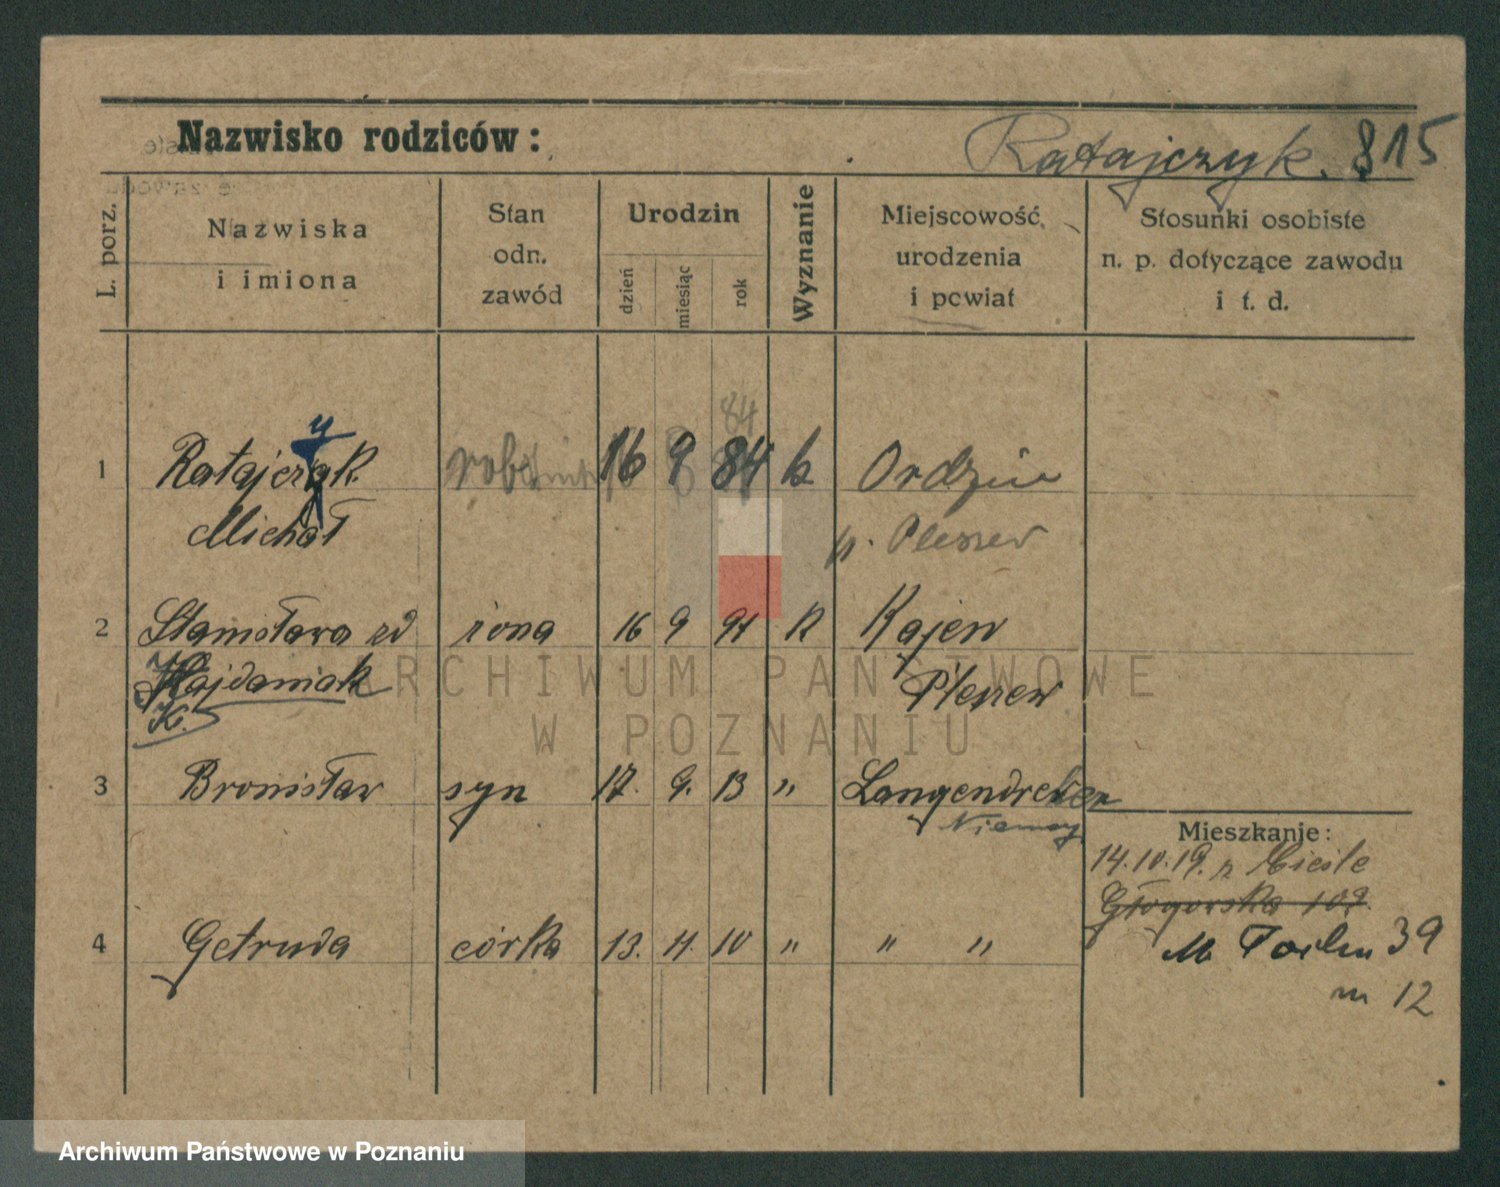 Nazwisko rodziców:
Ratajczyk. 815
L. porz.
Nazwiska
i imiona
Stan
odn.
zawód
Urodzin
dzień
miesiąc
rok
Wyznanie
Miejscowość,
urodzenia
i powiat
Stosunki osobiste
n. p. dotyczące zawodu
i t. d.
84
y
1 Ratajczak 16 9 84 k Ordzin
Michał p. Pleszew
2 Stanisława zd żona 16 9 91 k Kajew
Hajdaniak Pleszew
K.
3 Bronisław syn 17. 9. 13 " Langendreer
Niemcy
Mieszkanie:
14.10.19. z
Głogorska 109.
4 Getruda córka 13. 11. 10 " " "
39
m 12
ARCHIWUM PAŃSTWOWE
W POZNANIU
Archiwum Państwowe w Poznaniu